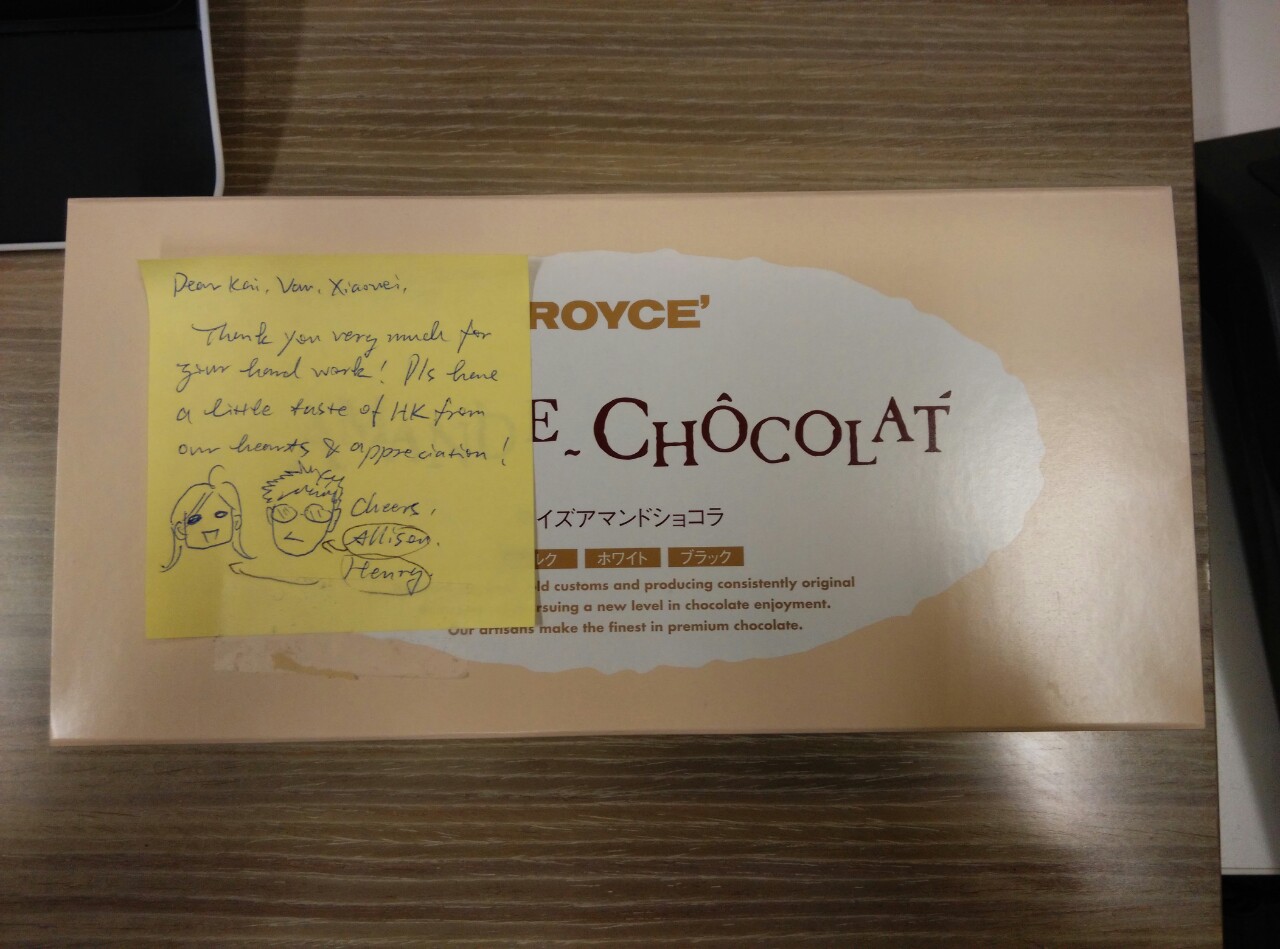 Dear Kai, Van, Xiaowei,
Thank you very much for
your hard work! Pls have
a little taste of HK from
our hearts & appreciation!
Cheers,
Allison.
Henry.
ROYCE'
E - CHÔCOLAT
イズアマンドショコラ
ルク ホワイト ブラック
ld customs and producing consistently original
rsuing a new level in chocolate enjoyment.
Our artisans make the finest in premium chocolate.